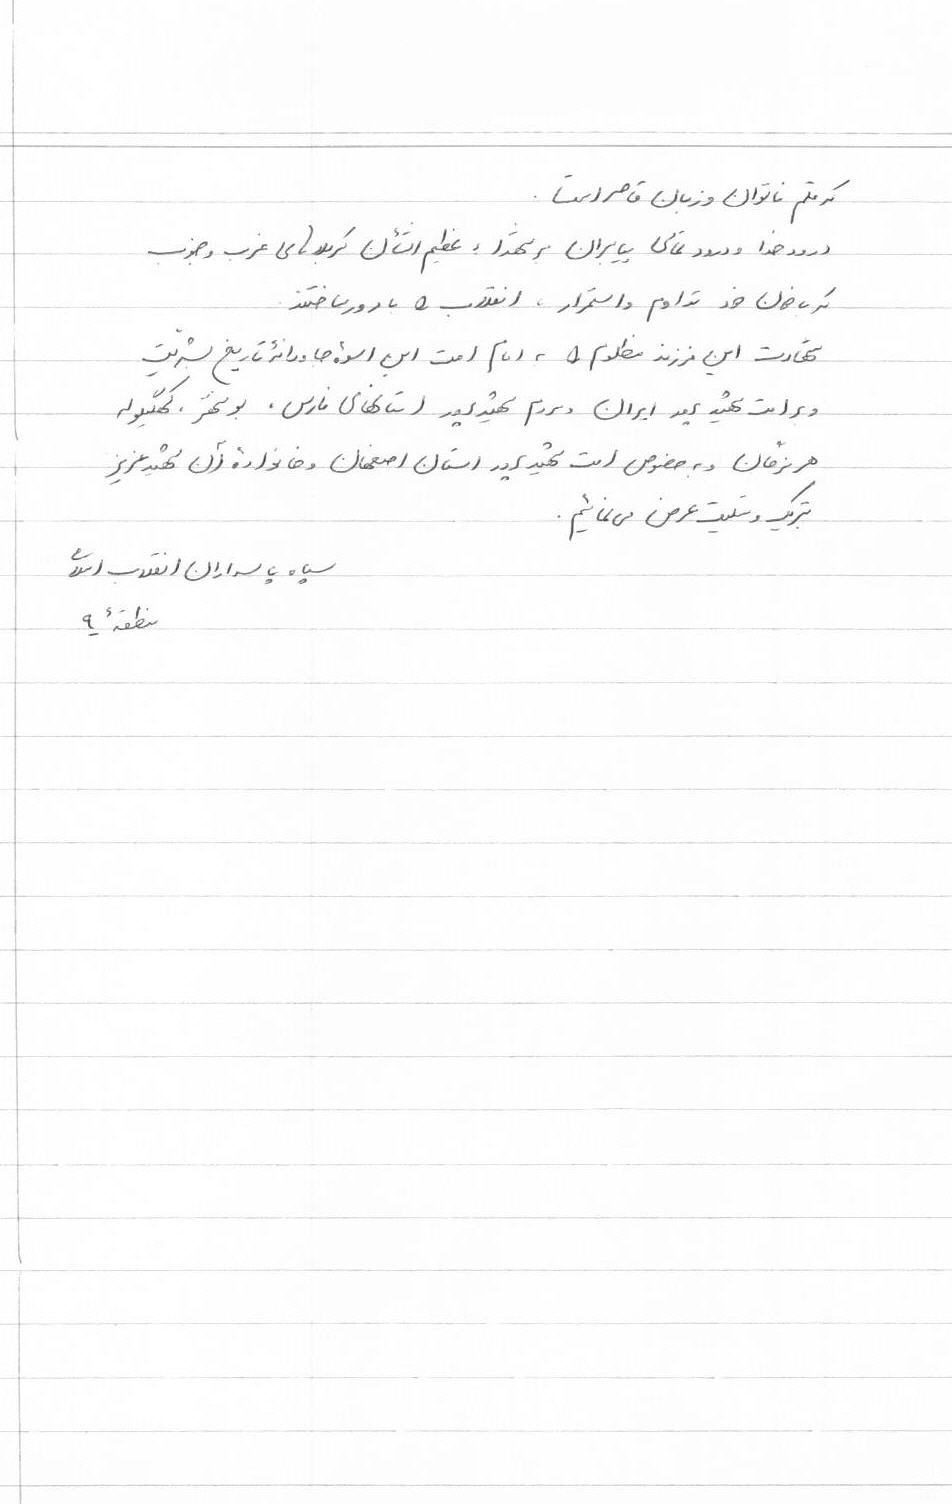 که قلم ناتوان و زبان قاصر است.
درود خدا و درود تمامی پیامبران بر شهداء عظیم الشأن کربلاهای غرب و جنوب
که با خون خود تداوم و استمرار، انقلاب را بارور ساختند.
شهادت این فرزند مظلوم را به امام امت این اسوۀ جاودانۀ تاریخ بشریّت
و بر امت شهید پرور ایران و مردم شهید پرور استانهای فارس، بوشهر، کهگیلویه
هرمزگان و به خصوص امت شهید پرور استان اصفهان و خانوادۀ آن شهید عزیز
تبریک و تسلیت عرض می نمائیم.
سپاه پاسداران انقلاب اسلامی
منطقۀ ۹